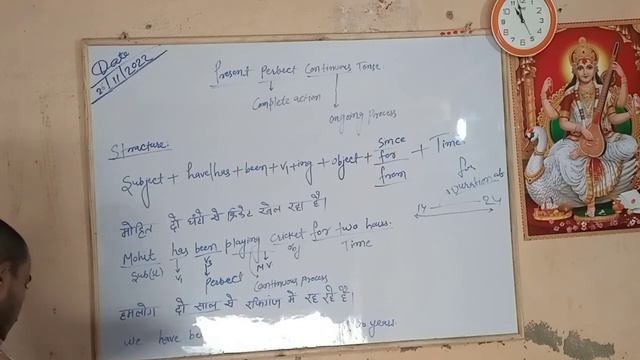 Date
20/11/2022
Present Perfect Continuous Tense
Complete action
ongoing process
Structure.
Subject + have/has + been + V₁ + ing + object + since + Time
for
from
for
मोहित दो घंटो से क्रिकेट खेल रहा है।
Mohit has been playing cricket for two hours.
V₁ V₃ MV obj Time
Perfect Continuous process
हमलोग दो साल से रफीगंज मे रह रहे है।
We have be
years.